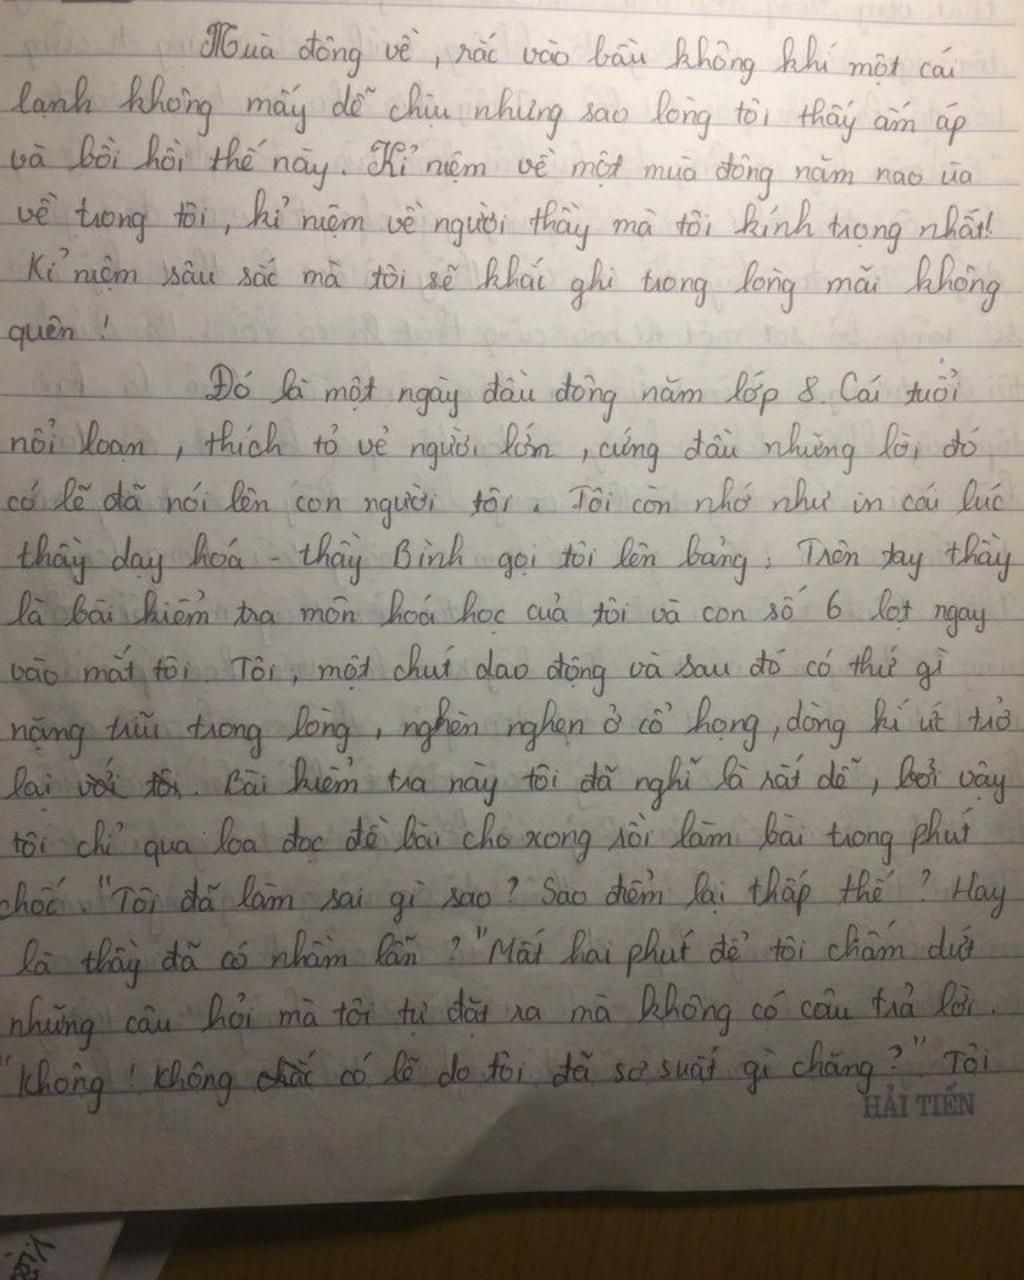 Mùa đông về, rắc vào bầu không khí một cái
lạnh không mấy dễ chịu nhưng sao lòng tôi thấy ấm áp
và bồi hồi thế này. Kỉ niệm về một mùa đông năm nao ùa
về trong tôi, kỉ niệm về người thầy mà tôi kính trọng nhất!
Kỉ niệm sâu sắc mà tôi sẽ khắc ghi trong lòng mãi không
quên!
Đó là một ngày đầu đông năm lớp 8. Cái tuổi
nổi loạn, thích tỏ vẻ người lớn, cứng đầu những lời đó
có lẽ đã nói lên con người tôi. Tôi còn nhớ như in cái lúc
thầy dạy hoá - thầy Bình gọi tôi lên bảng. Trên tay thầy
là bài kiểm tra môn hoá học của tôi và con số 6 lọt ngay
vào mắt tôi. Tôi, một chút dao động và sau đó có thứ gì
nặng trĩu trong lòng, nghèn nghẹn ở cổ họng, dòng kí ức trở
lại với tôi. Bài kiểm tra này tôi đã nghĩ là rất dễ, bởi vậy
tôi chỉ qua loa đọc đề bài cho xong rồi làm bài trong phút
chốc. "Tôi đã làm sai gì sao? Sao điểm lại thấp thế? Hay
là thầy đã có nhầm lẫn?" Mất hai phút để tôi chấm dứt
những câu hỏi mà tôi tự đặt ra mà không có câu trả lời.
"Không! Không chắc có lẽ do tôi đã sơ suất gì chăng?" Tôi
HẢI TIẾN